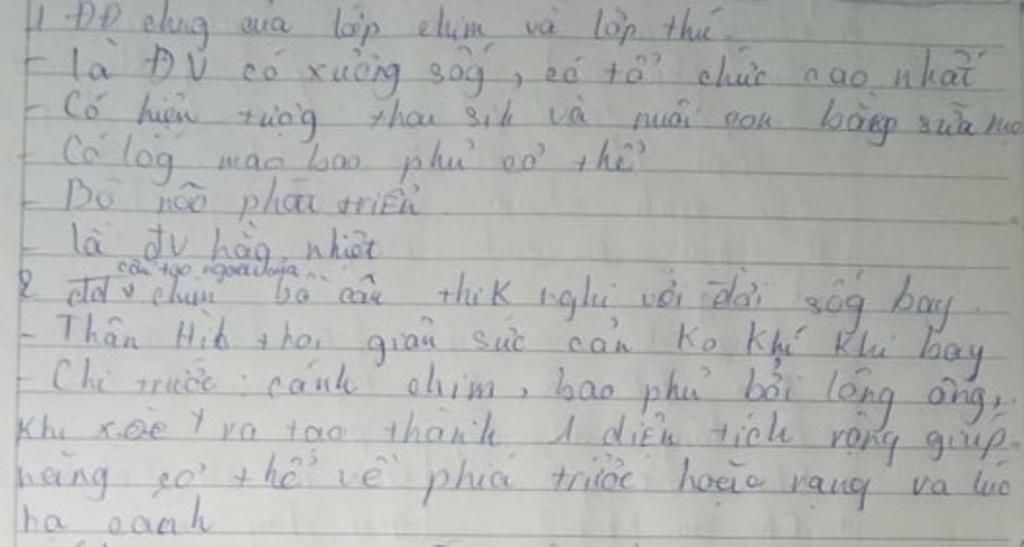 1 ĐĐ chug của lớp chim và lớp thú.
- là ĐV có xường sốg, có tổ chức cao nhất
- Có hiện tượng thai sih và nuôi con bằng sữa mẹ
- Có lôg mao bao phủ cơ thể
- Bộ não phát triển
- là đv hằg nhiệt
2 đđ cấu tạo ngoài của chim bồ câu thik nghi với đời sốg bay.
- Thân Hìh thoi giảm sức cản ko khí khi bay
- Chi trước: cánh chim, bao phủ bởi lông ống,
khi xoè ra tạo thành 1 diện tích rộng giúp
nâng cơ thể về phía trước hoặc rạng và lúc
hạ cánh